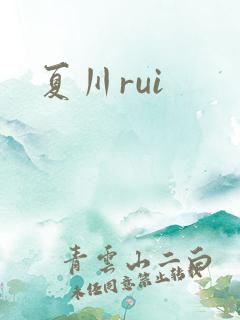 夏川rui
青雲山二白
未经同意禁止转载